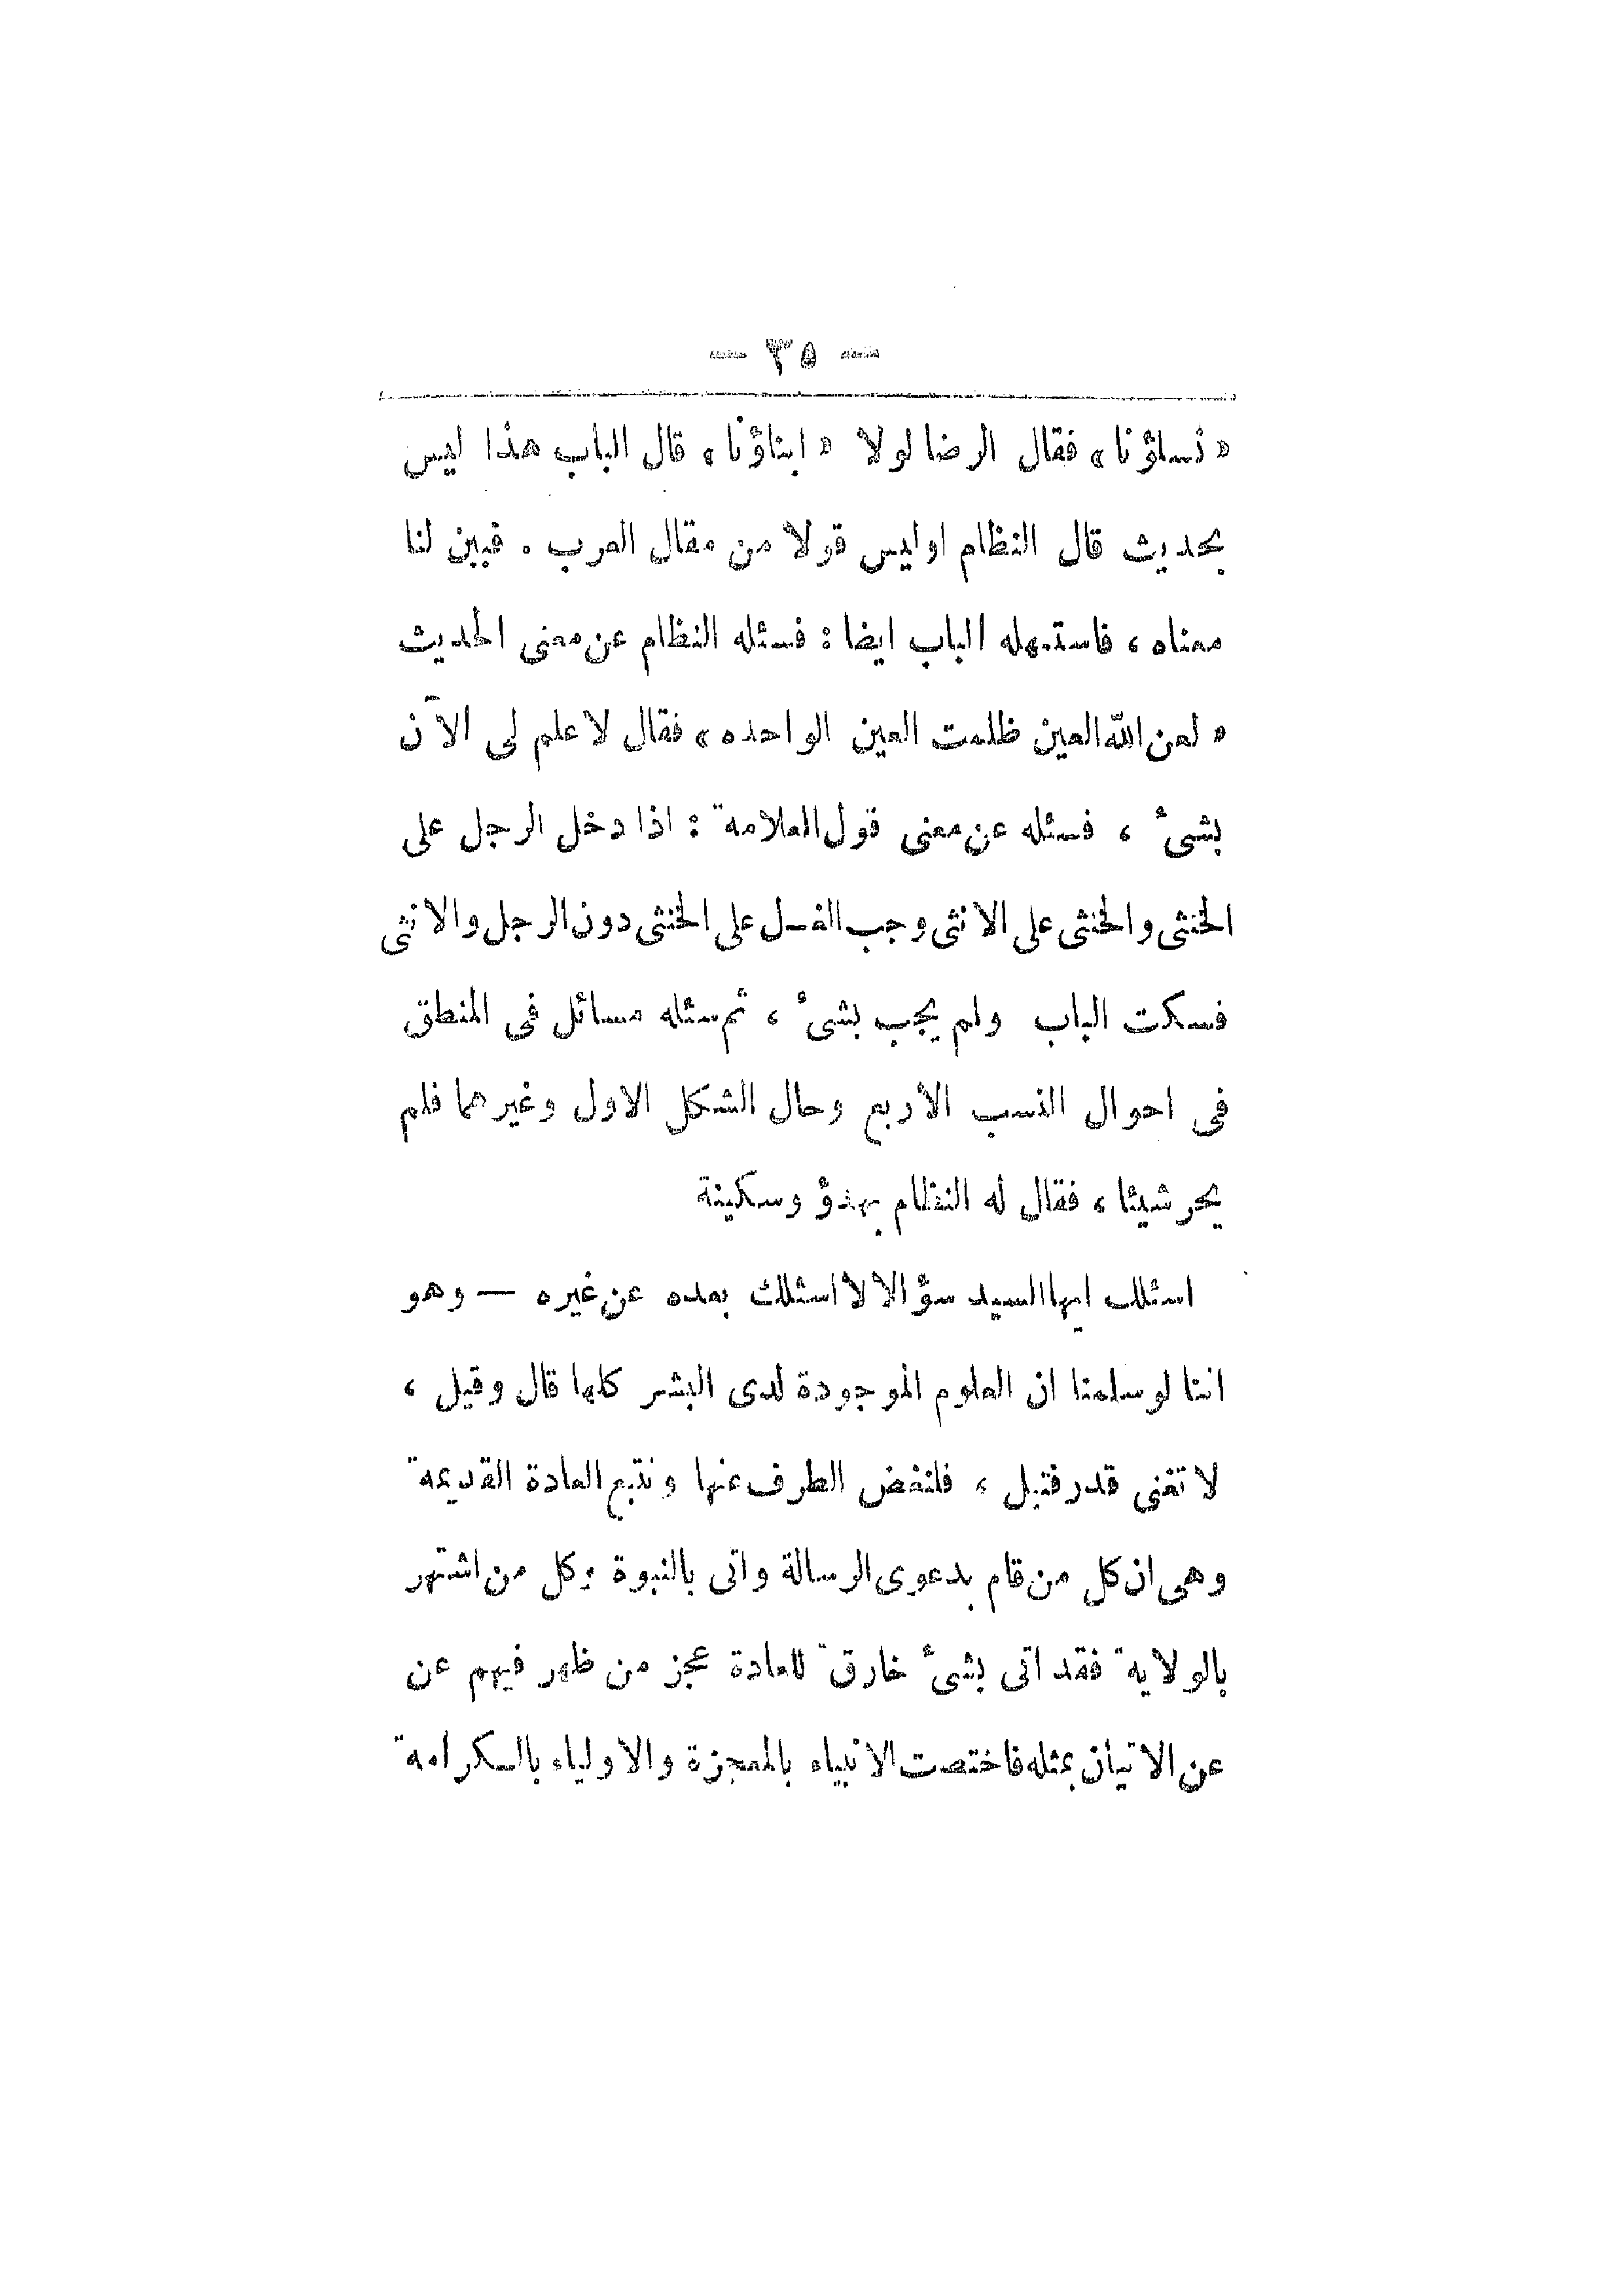 — ٣٥ —
« نساؤنا» فقال الرضا لولا « ابناؤنا» قال الباب هذا ليس
بحديث قال النظام اوليس قولا من مقال العرب . فبين لنا
معناه ، فاستمهله الباب ايضا : فسئله النظام عن معنى الحديث
« لعن الله العين ظلمت العين الواحده» فقال لا علم لى الآن
بشىء ، فسئله عن معنى قول العلامة : اذا دخل الرجل على
الخنثى والخنثى على الانثى وجب الغسل على الخنثى دون الرجل والانثى
فسكت الباب ولم يجب بشىء ، ثم سئله مسائل فى المنطق
فى احوال النسب الأربع وحال الشكل الاول وغيرهما فلم
يحر شيئا ، فقال له النظام بهدؤ وسكينة
اسئلك ايها السيد سؤالا لا اسئلك بعده عن غيره — وهو
اننا لو سلمنا ان العلوم الموجودة لدى البشر كلها قال وقيل ،
لا تغنى قدر فتيل ، فلنغض الطرف عنها ونتبع العادة القديمة
وهى ان كل من قام بدعوى الرسالة واتى بالنبوة وكل من اشتهر
بالولاية فقد اتى بشىء خارق للعادة عجز من ظهر فيهم عن
عن الاتيان بمثله فاختصت الانبياء بالمعجزة والاولياء بالكرامة